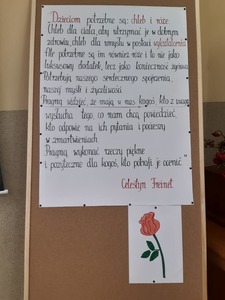 "Dzieciom potrzebne są: chleb i róże.
Chleb dla ciała, aby utrzymać je w dobrym
zdrowiu, chleb dla umysłu w postaci wykształcenia.
Ale potrzebne są im również róże i to nie jako
luksusowy dodatek, lecz jako konieczność życiowa.
Potrzebują naszego serdecznego spojrzenia,
naszej myśli i życzliwości.
Pragną widzieć, że mają w nas kogoś, kto z uwagą
wysłucha tego, co mam chcą powiedzieć,
kto odpowie na ich pytania i pocieszy
w zmartwieniach.
Pragną wykonać rzeczy piękne
i pożyteczne dla kogoś, kto potrafi je ocenić"
Celestyn Freinet